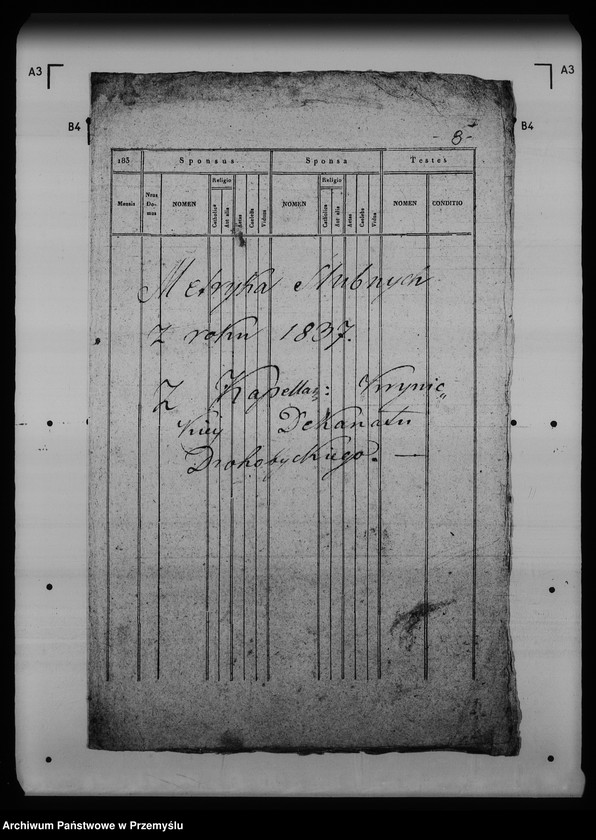 A3
A3
B4
B4
- 8 -
183
Sponsus
Sponsa
Testes
Mensis
Nrus Do- mus
NOMEN
Religio
Catholica
Aut alia
Aetas
Caelebs
Viduus
NOMEN
Religio
Catholica
Aut alia
Aetas
Caelebs
Vidua
NOMEN
CONDITIO
Metryka Slubnych
Z roku 1837.
Z Kapellan: Krynic„
kiey Dekanatu
Drohobyckiego. —
Archiwum Państwowe w Przemyślu